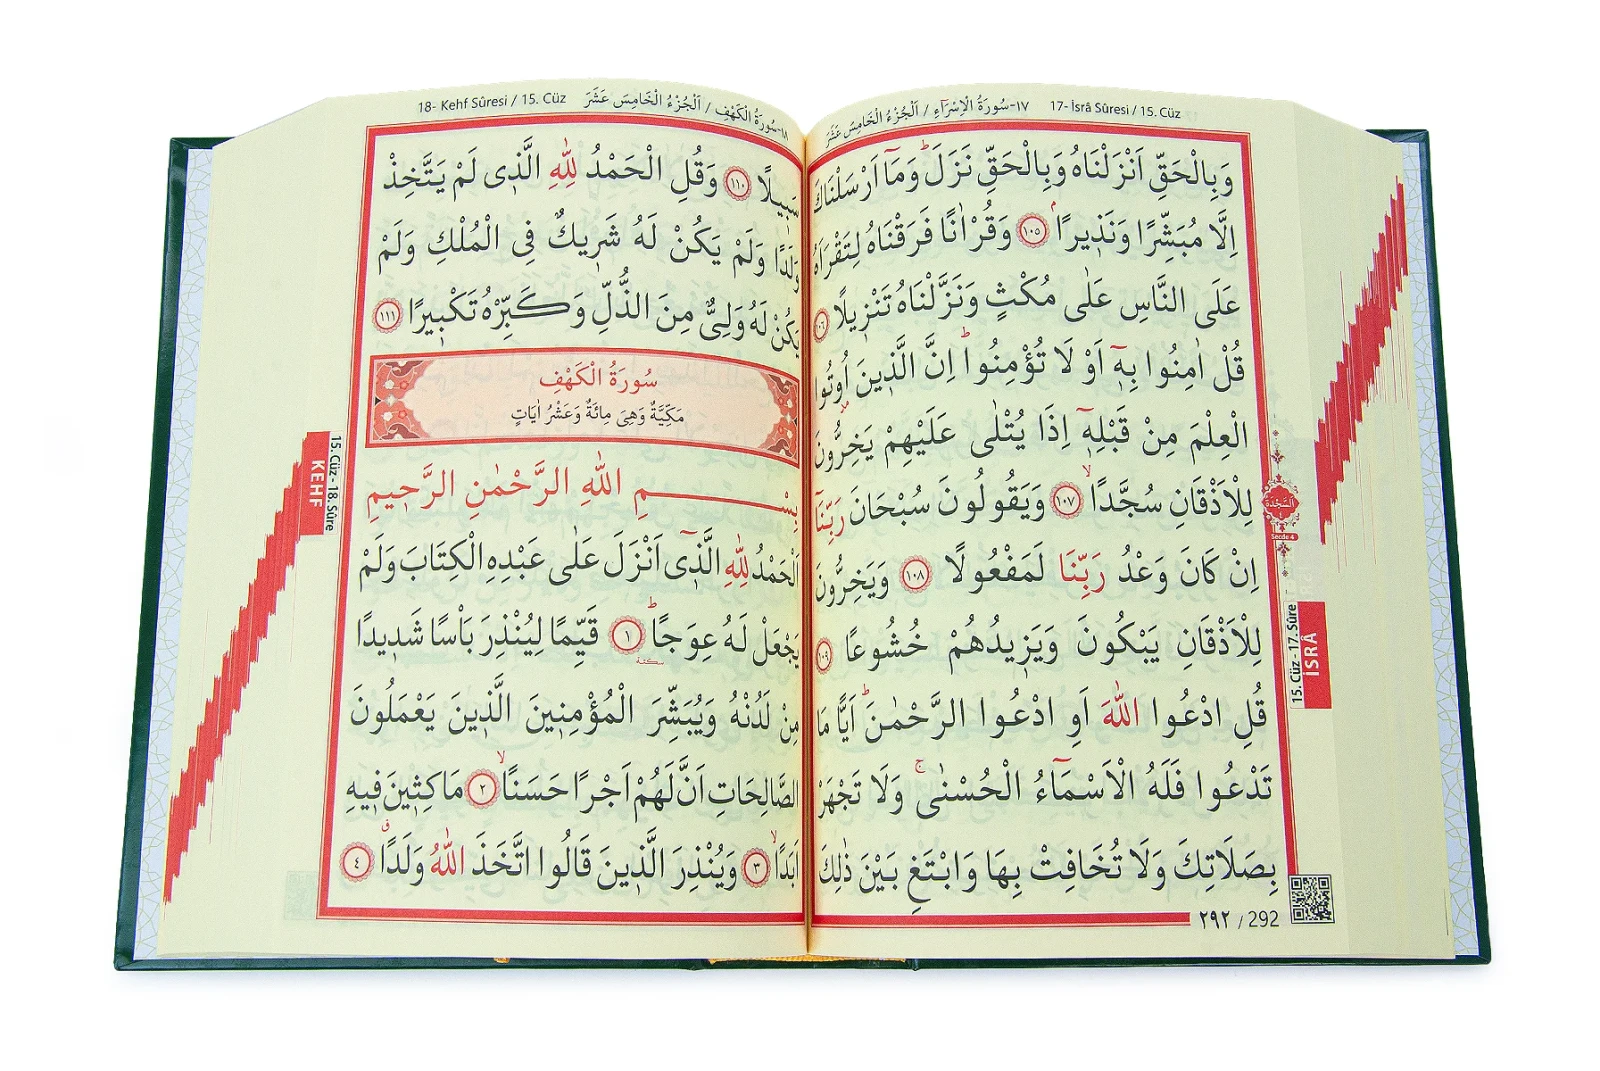 ١٧-سُورَةُ الْاِسْرَٓاءِ / اَلْجُزْءُ الْخَامِسَ عَشَرَ 17- İsrâ Sûresi / 15. Cüz
وَبِالْحَقِّ اَنْزَلْنَاهُ وَبِالْحَقِّ نَزَلَۜ وَمَٓا اَرْسَلْنَاكَ
اِلَّا مُبَشِّرًا وَنَذ۪يرًاۢ ﴿١٠٥﴾ وَقُرْاٰنًا فَرَقْنَاهُ لِتَقْرَاَهُ
عَلَى النَّاسِ عَلٰى مُكْثٍ وَنَزَّلْنَاهُ تَنْز۪يلًا ﴿١٠٦﴾
قُلْ اٰمِنُوا بِه۪ٓ اَوْ لَا تُؤْمِنُواۜ اِنَّ الَّذ۪ينَ اُو۫تُوا
الْعِلْمَ مِنْ قَبْلِه۪ٓ اِذَا يُتْلٰى عَلَيْهِمْ يَخِرُّونَ
لِلْاَذْقَانِ سُجَّدًاۙ ﴿١٠٧﴾ وَيَقُولُونَ سُبْحَانَ رَبِّنَٓا
اِنْ كَانَ وَعْدُ رَبِّنَا لَمَفْعُولًا ﴿١٠٨﴾ وَيَخِرُّونَ
لِلْاَذْقَانِ يَبْكُونَ وَيَز۪يدُهُمْ خُشُوعًا ﴿١٠٩﴾
قُلِ ادْعُوا اللّٰهَ اَوِ ادْعُوا الرَّحْمٰنَۜ اَيًّا مَا
تَدْعُوا فَلَهُ الْاَسْمَٓاءُ الْحُسْنٰىۚ وَلَا تَجْهَرْ
بِصَلَاتِكَ وَلَا تُخَافِتْ بِهَا وَابْتَغِ بَيْنَ ذٰلِكَ
اَلسَّجْدَة
Secde 4
15. Cüz - 17. Sûre
İSRÂ
٢٩٢ / 292
١٨-سُورَةُ الْكَهْفِ / اَلْجُزْءُ الْخَامِسَ عَشَرَ 18- Kehf Sûresi / 15. Cüz
سَب۪يلًا ﴿١١٠﴾ وَقُلِ الْحَمْدُ لِلّٰهِ الَّذ۪ى لَمْ يَتَّخِذْ
وَلَدًا وَلَمْ يَكُنْ لَهُ شَر۪يكٌ فِى الْمُلْكِ وَلَمْ
يَكُنْ لَهُ وَلِىٌّ مِنَ الذُّلِّ وَكَبِّرْهُ تَكْب۪يرًا ﴿١١١﴾
سُورَةُ الْكَهْفِ
مَكِّيَّةٌ وَهِىَ مِائَةٌ وَعَشْرُ اٰيَاتٍ
بِسْمِ اللّٰهِ الرَّحْمٰنِ الرَّح۪يمِ
اَلْحَمْدُ لِلّٰهِ الَّذ۪ٓى اَنْزَلَ عَلٰى عَبْدِهِ الْكِتَابَ وَلَمْ
يَجْعَلْ لَهُ عِوَجًاۜ ﴿١﴾ سكتة قَيِّمًا لِيُنْذِرَ بَاْسًا شَد۪يدًا
مِنْ لَدُنْهُ وَيُبَشِّرَ الْمُؤْمِن۪ينَ الَّذ۪ينَ يَعْمَلُونَ
الصَّالِحَاتِ اَنَّ لَهُمْ اَجْرًا حَسَنًاۙ ﴿٢﴾ مَاكِث۪ينَ ف۪يهِ
اَبَدًاۙ ﴿٣﴾ وَيُنْذِرَ الَّذ۪ينَ قَالُوا اتَّخَذَ اللّٰهُ وَلَدًاۗ ﴿٤﴾
15. Cüz - 18. Sûre
KEHF